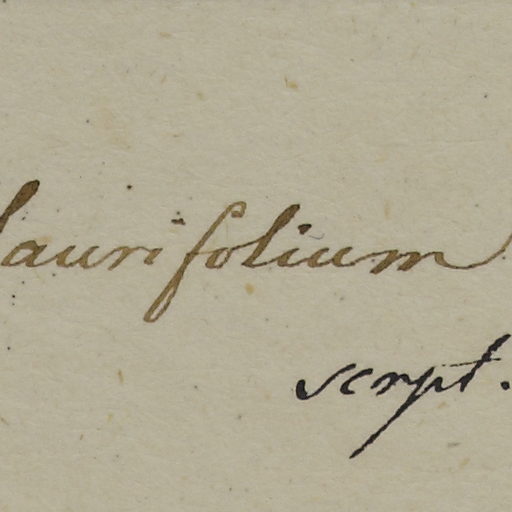 laurifolium
script.